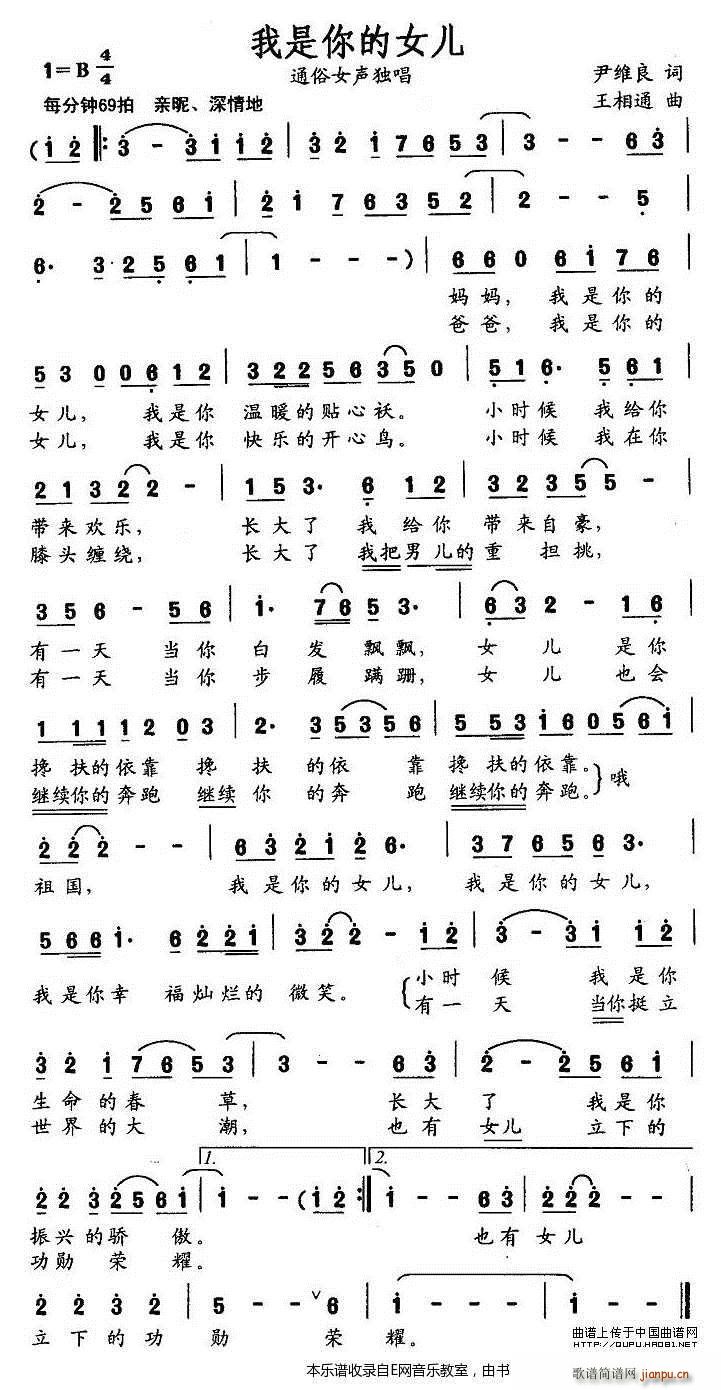 我是你的女儿
1=B 4/4
通俗女声独唱
尹维良 词
每分钟69拍 亲昵、深情地
王相通 曲
(i 2 |: 3 - 3 i i 2 | 3 2 i 7 6 5 3 | 3 - - 6 3 |
2 - 2 5 6 i | 2 i 7 6 3 5 2 | 2 - - 5 |
6· 3 2 5 6 1 | 1 - - - ) | 6 6 0 6 i 7 6 |
妈妈, 我是你的
爸爸, 我是你的
5 3 0 0 6 1 2 | 3 2 2 5 6 3 5 0 | 5 1 6· 5 6 1 |
女儿, 我是你 温暖的贴心袄。 小时候 我给你
女儿, 我是你 快乐的开心鸟。 小时候 我在你
2 1 3 2 2 - | 1 5 3· 6 1 2 | 3 2 3 5 5 - |
带来欢乐, 长大了 我给你 带来自豪,
膝头缠绕, 长大了 我把男儿的重担挑,
3 5 6 - 5 6 | i· 7 6 5 3· | 6 3 2 - 1 6 |
有一天 当你 白发飘飘, 女儿 是你
有一天 当你 步履蹒跚, 女儿 也会
1 1 1 1 2 0 3 | 2· 3 5 3 5 | 5 5 3 i 6 0 5 6 i |
搀扶的依靠 搀扶的依靠 搀扶的依靠。
继续你的奔跑 继续你的奔跑 继续你的奔跑。
哦
2 2 2 - - | 6 3 2 i 2 6· | 3 7 6 5 6 3· |
祖国, 我是你的女儿, 我是你的女儿,
5 6 6 i· 6 2 2 i | 3 2 2 - i 2 | 3 - 3 i i 2 |
我是你幸福灿烂的微笑。 小时候 我是你
有一天 当你挺立
3 2 i 7 6 5 3 | 3 - - 6 3 | 2 - 2 5 6 i |
生命的春草, 长大了 我是你
世界的大潮, 也有女儿 立下的
1.
2.
2 2 3 2 5 6 i | i - - (i 2 :| i - - 6 3 | 2 2 2 - - |
振兴的骄傲。 也有女儿
功勋荣耀。
2 2 2 3 2 | 5 - - 6 | i - - - | i - - - |
立下的功勋荣耀。
曲谱上传于中国曲谱网
http://QUPU.HAO81.NET
本乐谱收录自E网音乐教室,由书
歌谱简谱网
jianpu.cn